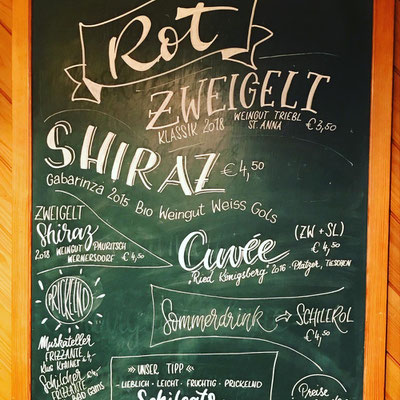 Rot
ZWEIGELT
KLASSIK 2018 WEINGUT TRIEBL
ST. ANNA € 3,50
SHIRAZ € 4,50
Gabarinza 2015 Bio Weingut Weiss Gols
ZWEIGELT
Shiraz
2018 WEINGUT PAURITSCH
WERNERSDORF € 4,50
Cuvée (ZW + SL)
€ 4,50
„Ried Königsberg" 2016 - Platzer, TIESCHEN
PRICKELND
Sommerdrink → SCHILEROL
€ 4,50
Muskateller
FRIZZANTE
Schilcher
FRIZZANTE
» UNSER TIPP «
- LIEBLICH - LEICHT - FRUCHTIG - PRICKELND
Preise